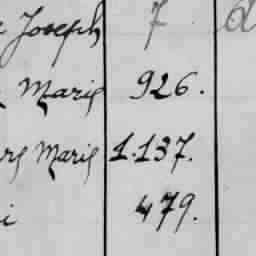 Joseph 7 d
Marie 926.
Marie 1.137.
i 479.